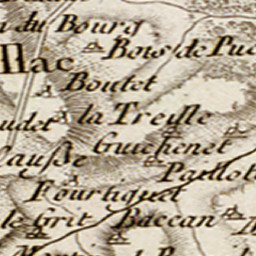 du Bourg
Bois de Puc
llac
Boutet
la Treille
udet
Guichenet
Causse
Paulot
Fourtiquet
le Grit
Baccan